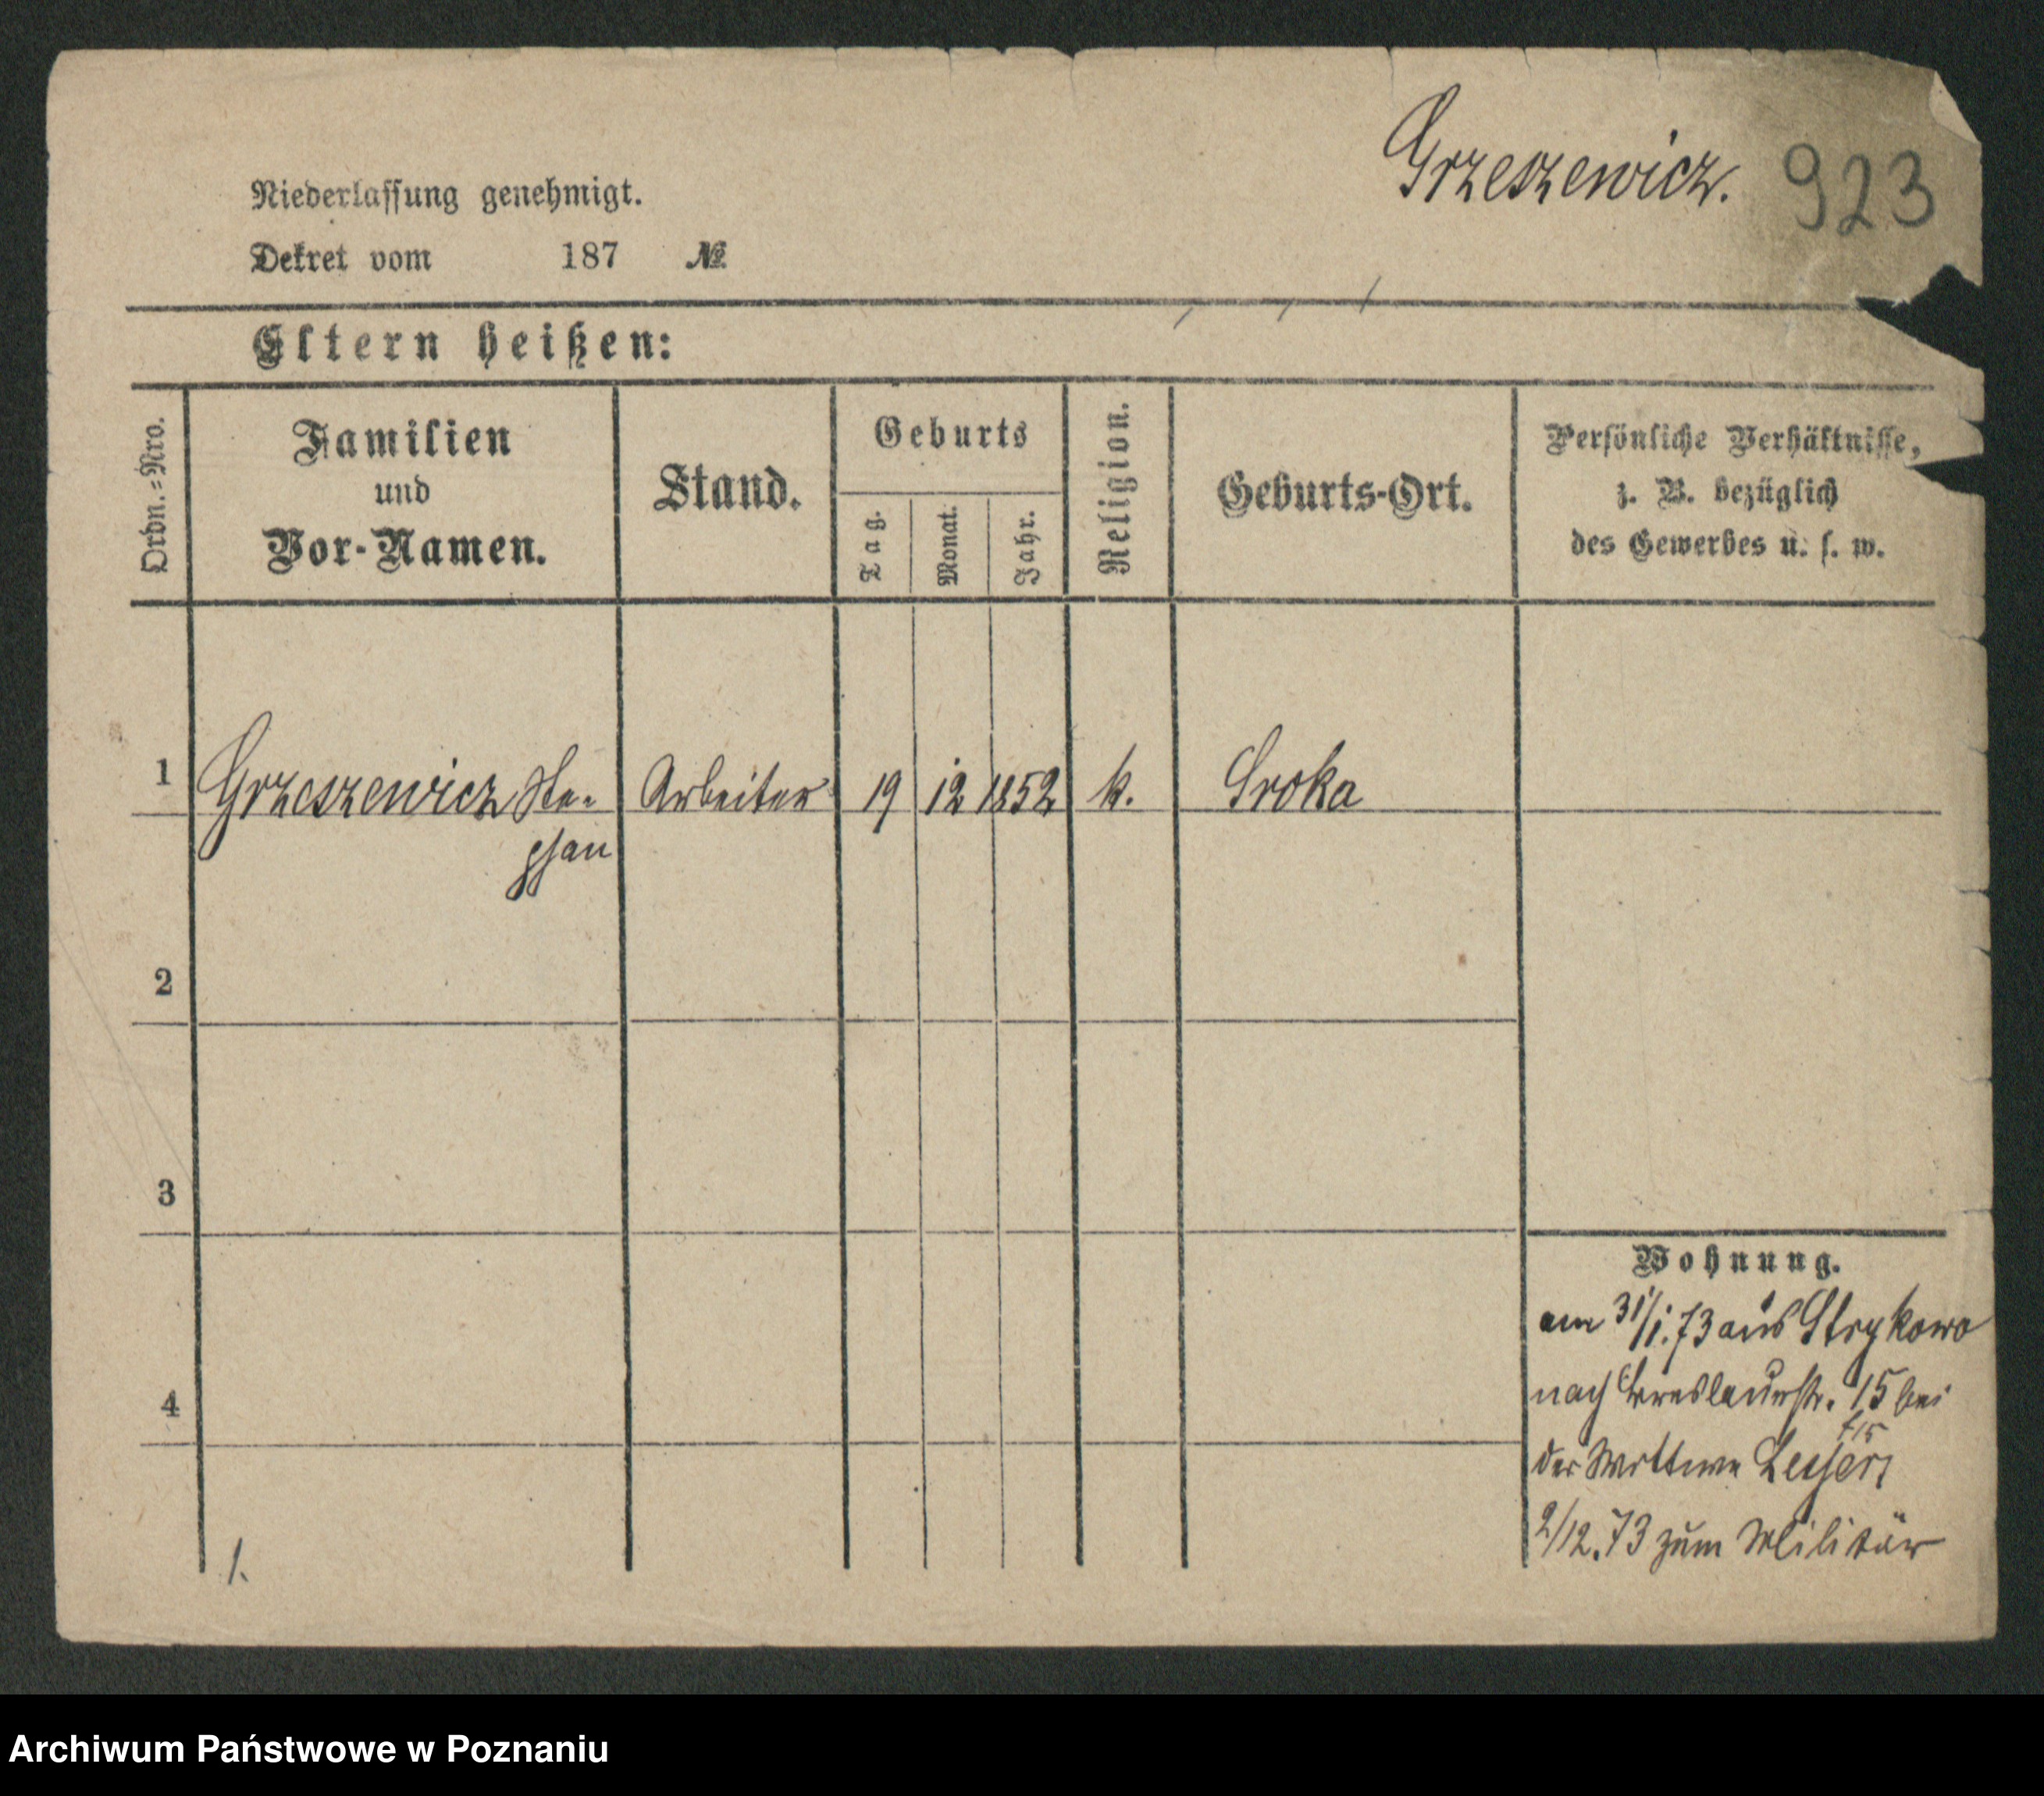 Grzeszewicz. 923
Niederlassung genehmigt.
Dekret vom 187 №
Eltern heißen:
Ordn.=Nro.
Familien
und
Vor-Namen.
Stand.
Geburts
Tag.
Monat.
Jahr.
Religion.
Geburts-Ort.
Persönliche Verhältnisse,
z. B. bezüglich
des Gewerbes u. s. w.
1 Grzeszewicz Ste- Arbeiter 19 12 1852 k. Sroka
phan
2
3
4
Wohnung.
am 31/1.73 aus Strykowo
nach Breslauerstr. 15 bei
der Wittwe Lesser,
2/12.73 zum Militär
1.
Archiwum Państwowe w Poznaniu